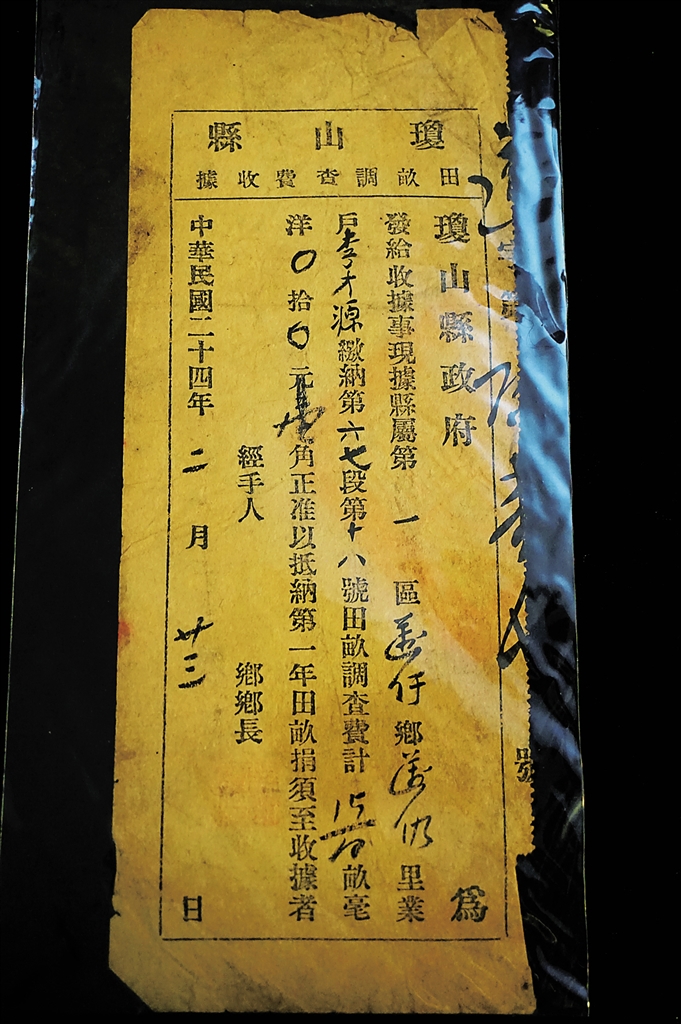 瓊山縣
田畝調查費收據
號
瓊山縣政府 為
發給收據事現據縣屬第一區 仔鄉 里業
戶李才源繳納第六七段第十八號田畝調查費計 畝毫
洋〇拾〇元 角正准以抵納第一年田畝捐須至收據者
經手人 鄉鄉長
中華民國二十四年二月廿三日